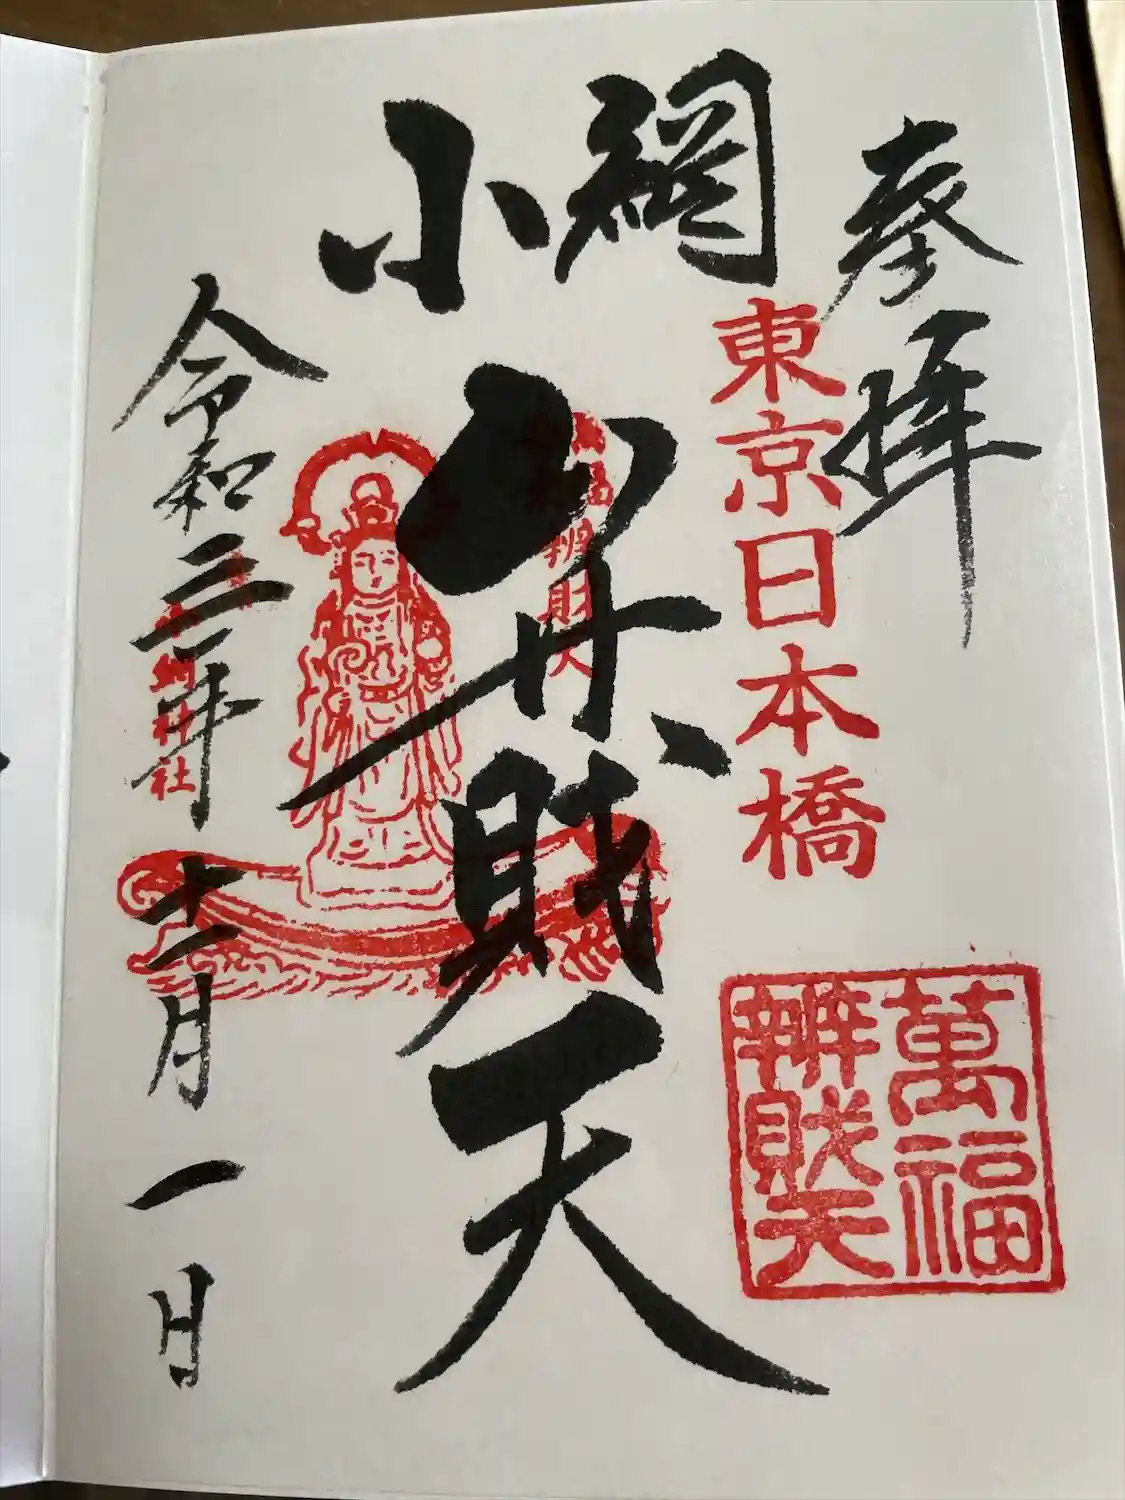 奉拝
東京日本橋
萬福
辨財天
小網
弁財天
萬福辨財天
令和三年十二月一日
小網神社